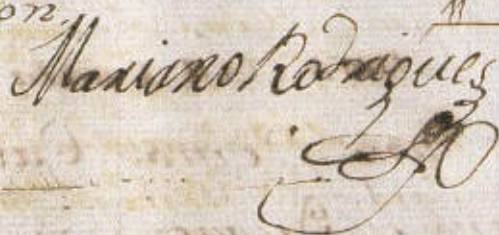 on.
Mariano Rodriguez